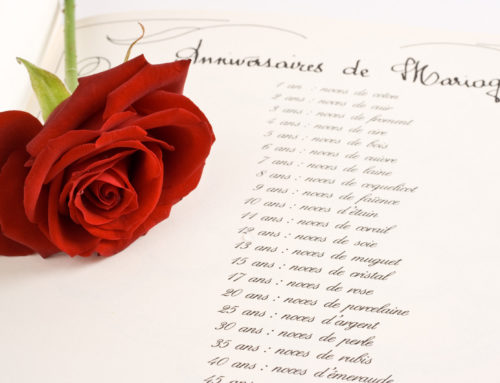 Anniversaires de Mariag
1 an : noces de coton
2 ans : noces de cuir
3 ans : noces de froment
4 ans : noces de cire
5 ans : noces de bois
6 ans : noces de cuivre
7 ans : noces de laine
8 ans : noces de coquelicot
9 ans : noces de faïence
10 ans : noces d'étain
11 ans : noces de corail
12 ans : noces de soie
13 ans : noces de muguet
15 ans : noces de cristal
17 ans : noces de rose
20 ans : noces de porcelaine
25 ans : noces d'argent
30 ans : noces de perle
35 ans : noces de rubis
40 ans : noces d'émeraude
45 ans